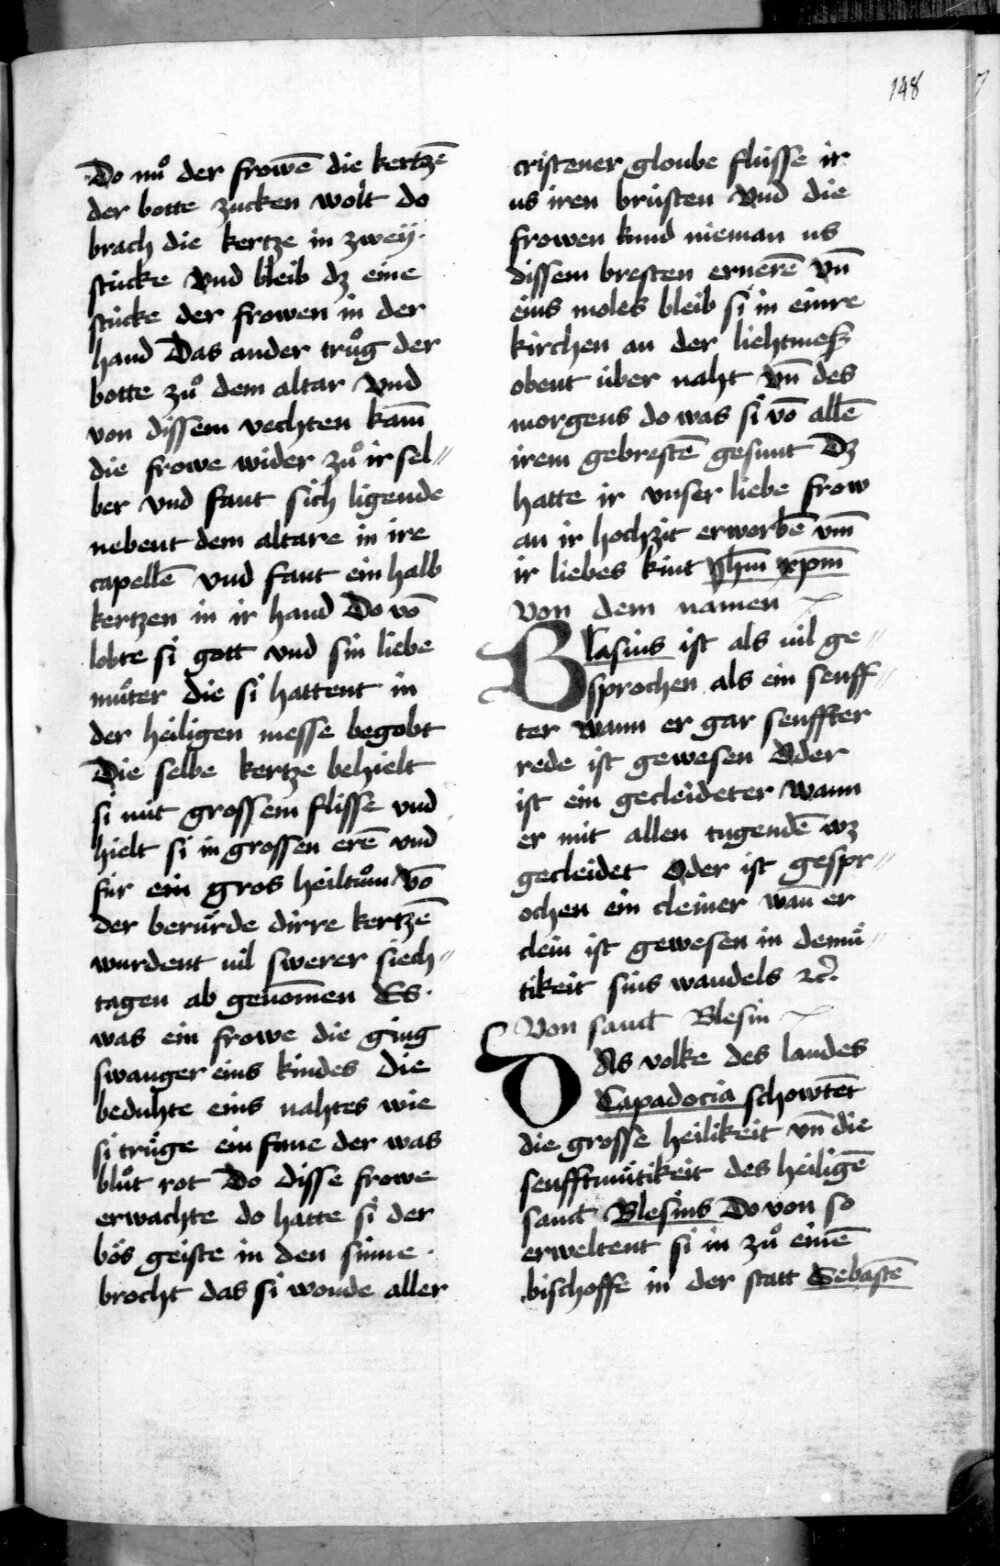 148
Do nuͦ der frowē die kertzē
der botte zucken wolt do
brach die kertze in zweÿ·
stücke Vnd bleib dz eine
stücke der frowen in der
hand Das ander truͦg der
botte zuͦ dem altar Vnd
von dissem vechten kam̄
die frowe wider zuͦ ir sel⸗
ber vnd fant sich ligende
nebent dem altare in ire
capellē vnd fant ein halb
kertzen in ir hand Do vō
lobte si gott vnd sin liebe
muͦter die si hattent in
der heiligen messe begobt
Die selbe kertze behielt
si mit grossem flisse vnd
hielt si in grossen erē vnd
für ein gros heiltuͦm Vō
der beruͤrde dirre kertzē
wurdent uil swerer siech⸗
tagen ab genōmen Es·
was ein frowe die ging
swanger eins kindes Die
beduhte eins nahtes wie
si truͤge ein fane der was
bluͦt rot Do disse frowe
erwachte do hatte si der
boͤs geiste in den sinne·
brocht das si wonde aller
cristener gloube flüsse ir
us iren brüsten Vnd die
frowen kund nieman us
dissem bresten ernerē vn̄
eins moles bleib si in einre
kirchen an der liehtmeß
obent über naht vn̄ des
morgens do was si vō allē
irem gebrestē gesunt Dz
hatte ir vnser liebe frow
an ir hochzit erworbē vm̄
ir liebes kint Jhm̄ xpm̄
Von dem namen
Blasius ist als uil ge⸗
sprochen als ein senff⸗
ter wann er gar senffter
rede ist gewesen Oder
ist ein gecleideter wann
er mit allen tugendē wz
gecleidet Oder ist gespr⸗
ochen ein cleiner wan̄ er
clein ist gewesen in demuͤ⸗
tikeit sins wandels ⁊c̄.
Von sanct Blesin
DAs volke des landes
Capadocia schowtēt
die grosse heilikeit vn̄ die
senfftmuͤtikeit des heiligē
sanct Blesins Do von so
erweltent si in zuͦ einē
bischoffe in der statt Sebastē